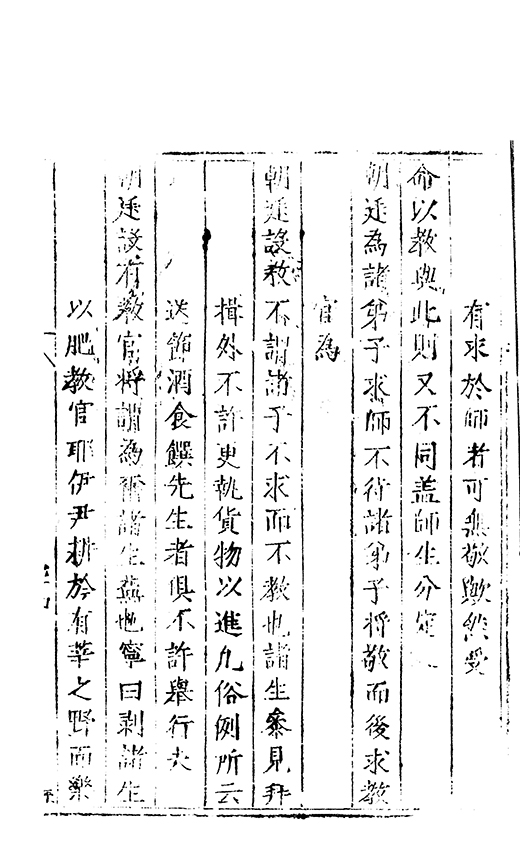 有求於師者可無敬歟然受
命以教與此則又不同盖師生分定
朝廷為諸弟子求師不待諸弟子將敬而後求教
官為
朝廷設教不謂諸子不求而不教也諸生參見拜
揖外不許更執貨物以進凡俗例所云
送飾酒食饌先生者俱不許舉行夫
朝廷設有教官將謂為爾諸生蠹也寧曰剥諸生
以肥教官耶伊尹耕於有莘之野而樂